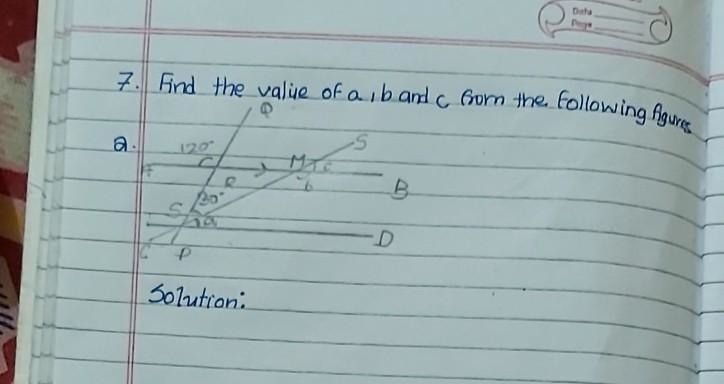 Date
Page
7. Find the value of a, b and c from the following figures
Q
a.
S
120°
M
c
R
b
B
30°
S
a
D
C
P
Solution: